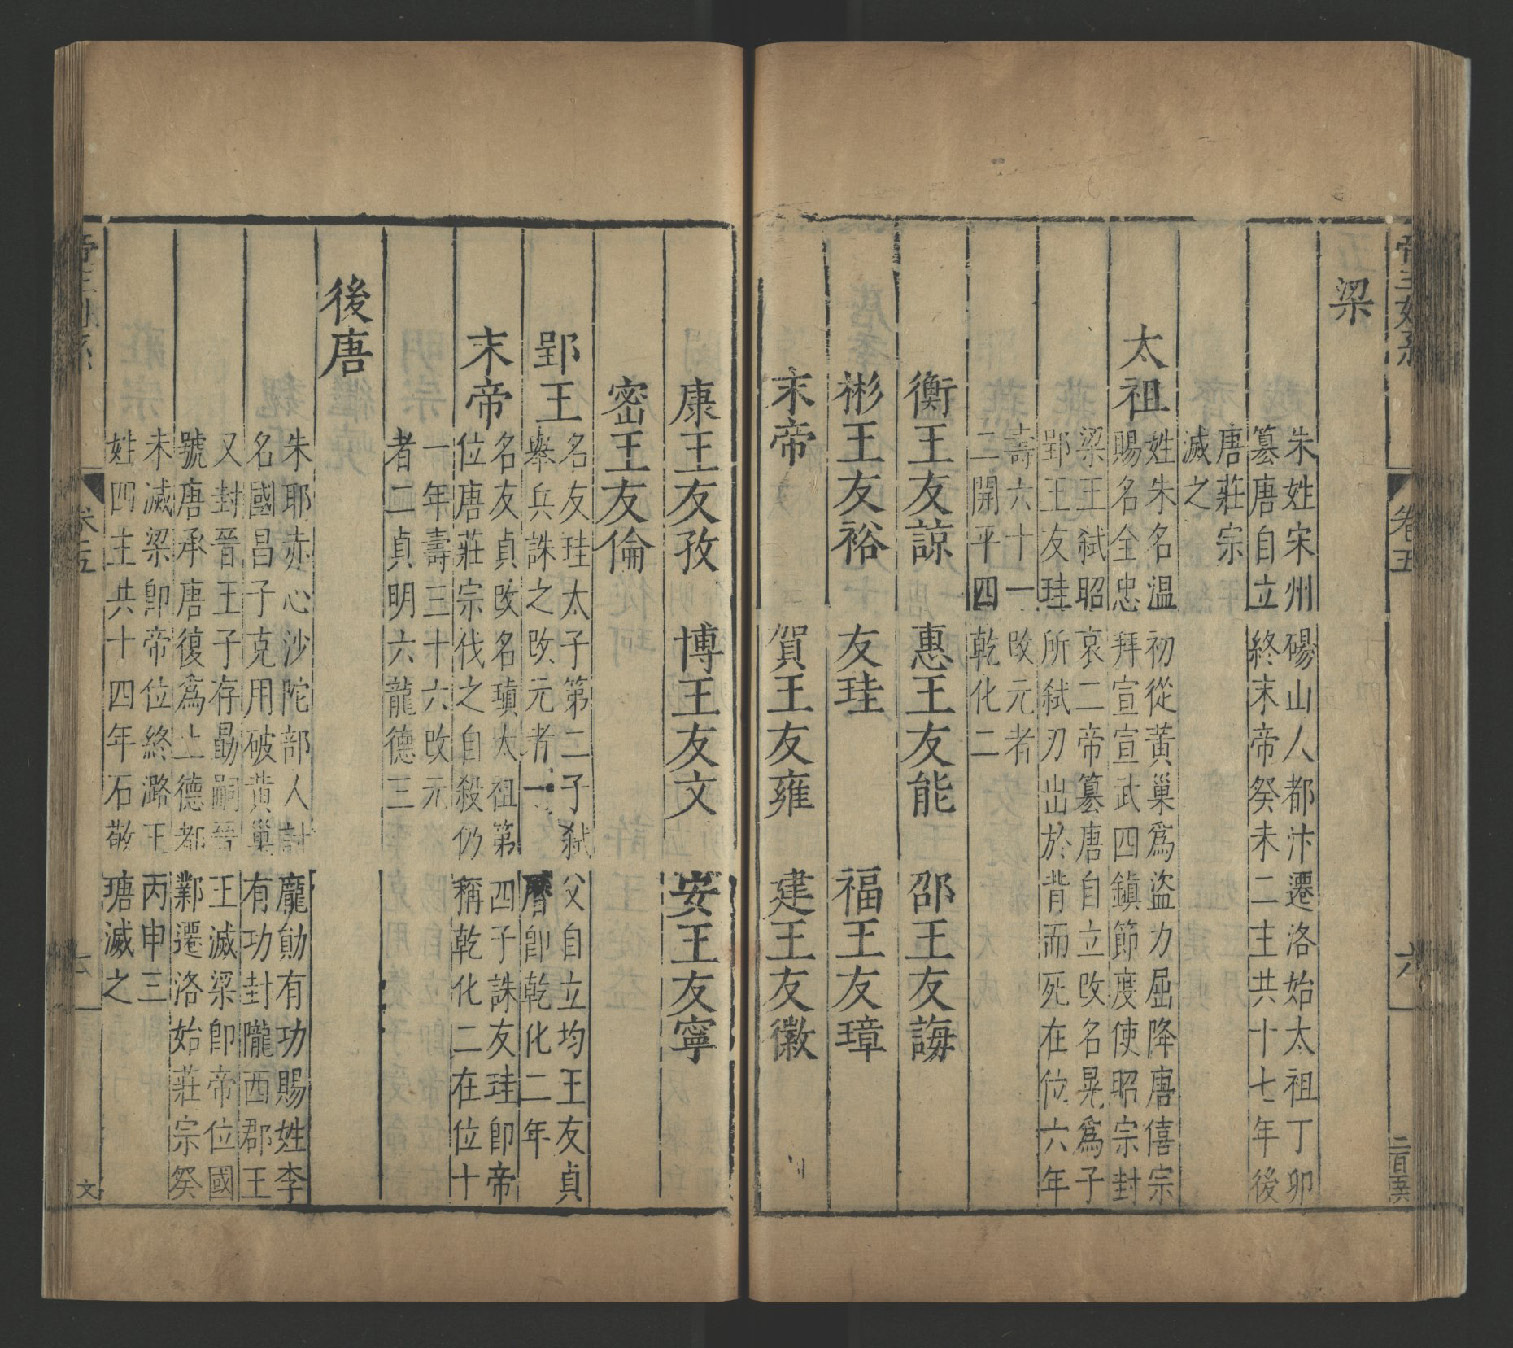 帝王世系
卷五
六
梁
朱姓宋州碭山人都汴遷洛始太祖丁卯
篡唐自立終末帝癸未二主共十七年後
唐莊宗
滅之
太祖
姓朱名溫初從黃巢爲盜力屈降唐僖宗
賜名全忠拜宣宣武四鎮節度使昭宗封
梁王弒昭哀二帝篡唐自立改名晃爲子
郢王友珪所弒刃出於背而死在位六年
壽六十一改元者
二開平四乾化二
衡王友諒 惠王友能 邵王友誨
彬王友裕 友珪 福王友璋
末帝 賀王友雍 建王友徽
康王友孜 博王友文 安王友寧
密王友倫
郢王
名友珪太子第二子弒父自立均王友貞
舉兵誅之改元者一曆即乾化二年
末帝
名友貞改名瑱太祖第四子誅友珪即帝
位唐莊宗伐之自殺仍稱乾化二在位十
一年壽三十六改元
者二貞明六龍德三
後唐
朱耶赤心沙陀部人討龐勛有功賜姓李
名國昌子克用破黃巢有功封隴西郡王
又封晉王子存勗嗣晉王滅梁即帝位國
號唐承唐復爲土德都鄴遷洛始莊宗癸
未滅梁即帝位終潞王丙申三
姓四主共十四年石敬瑭滅之
卷五
六
文